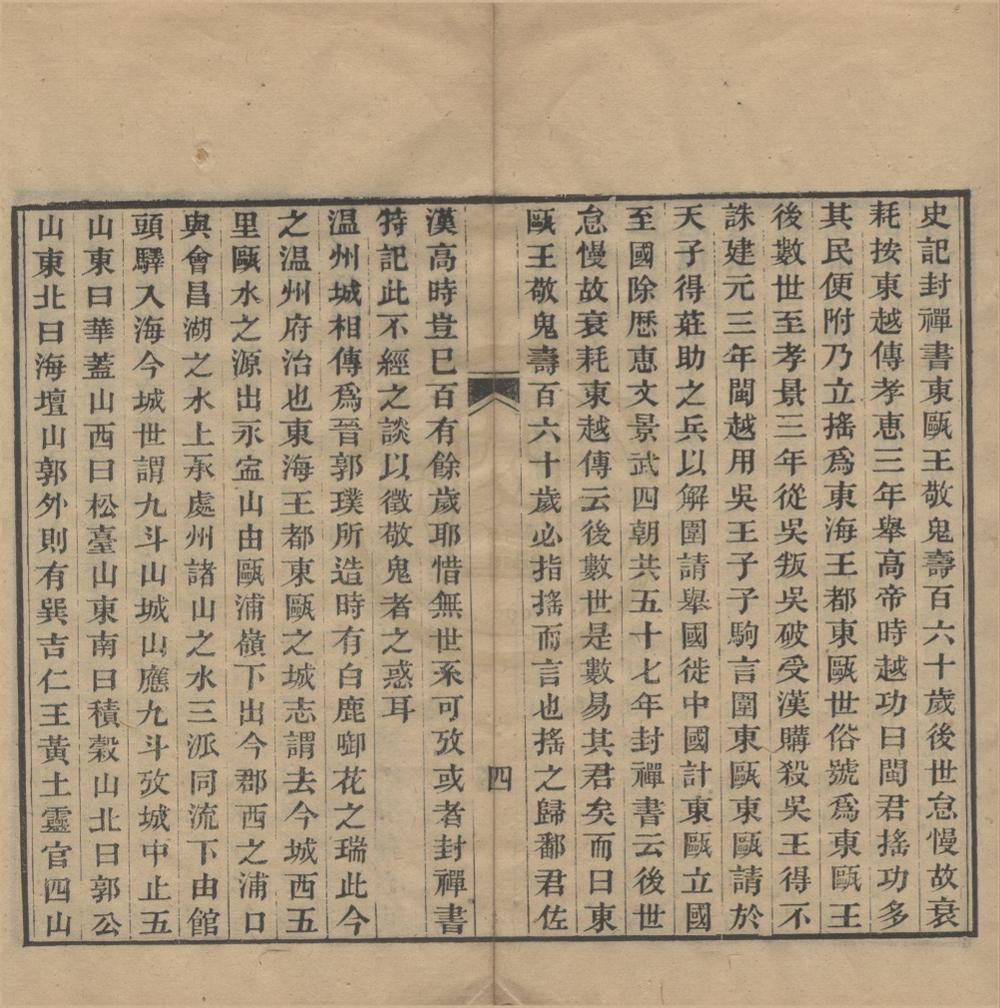 史記封禪書東甌王敬鬼壽百六十歲後世怠慢故衰
耗按東越傳孝惠三年舉高帝時越功曰閩君搖功多
其民便附乃立搖為東海王都東甌世俗號為東甌王
後數世至孝景三年從吳叛吳破受漢購殺吳王得不
誅建元三年閩越用吳王子子駒言圍東甌東甌請於
天子得莊助之兵以解圍請舉國徙中國計東甌立國
至國除歷惠文景武四朝共五十七年封禪書云後世
怠慢故衰耗東越傳云後數世是數易其君矣而曰東
甌王敬鬼壽百六十歲必指搖而言也搖之歸鄱君佐
四
漢高時豈巳百有餘歲耶惜無世系可攷或者封禪書
特記此不經之談以徵敬鬼者之惑耳
温州城相傳為晉郭璞所造時有白鹿啣花之瑞此今
之温州府治也東海王都東甌之城志謂去今城西五
里甌水之源出永寍山由甌浦嶺下出今郡西之浦口
與會昌湖之水上承處州諸山之水三派同流下由館
頭驛入海今城世謂九斗山城山應九斗攷城中止五
山東曰華蓋山西曰松臺山東南曰積穀山北曰郭公
山東北曰海壇山郭外則有巽吉仁王黃土靈官四山